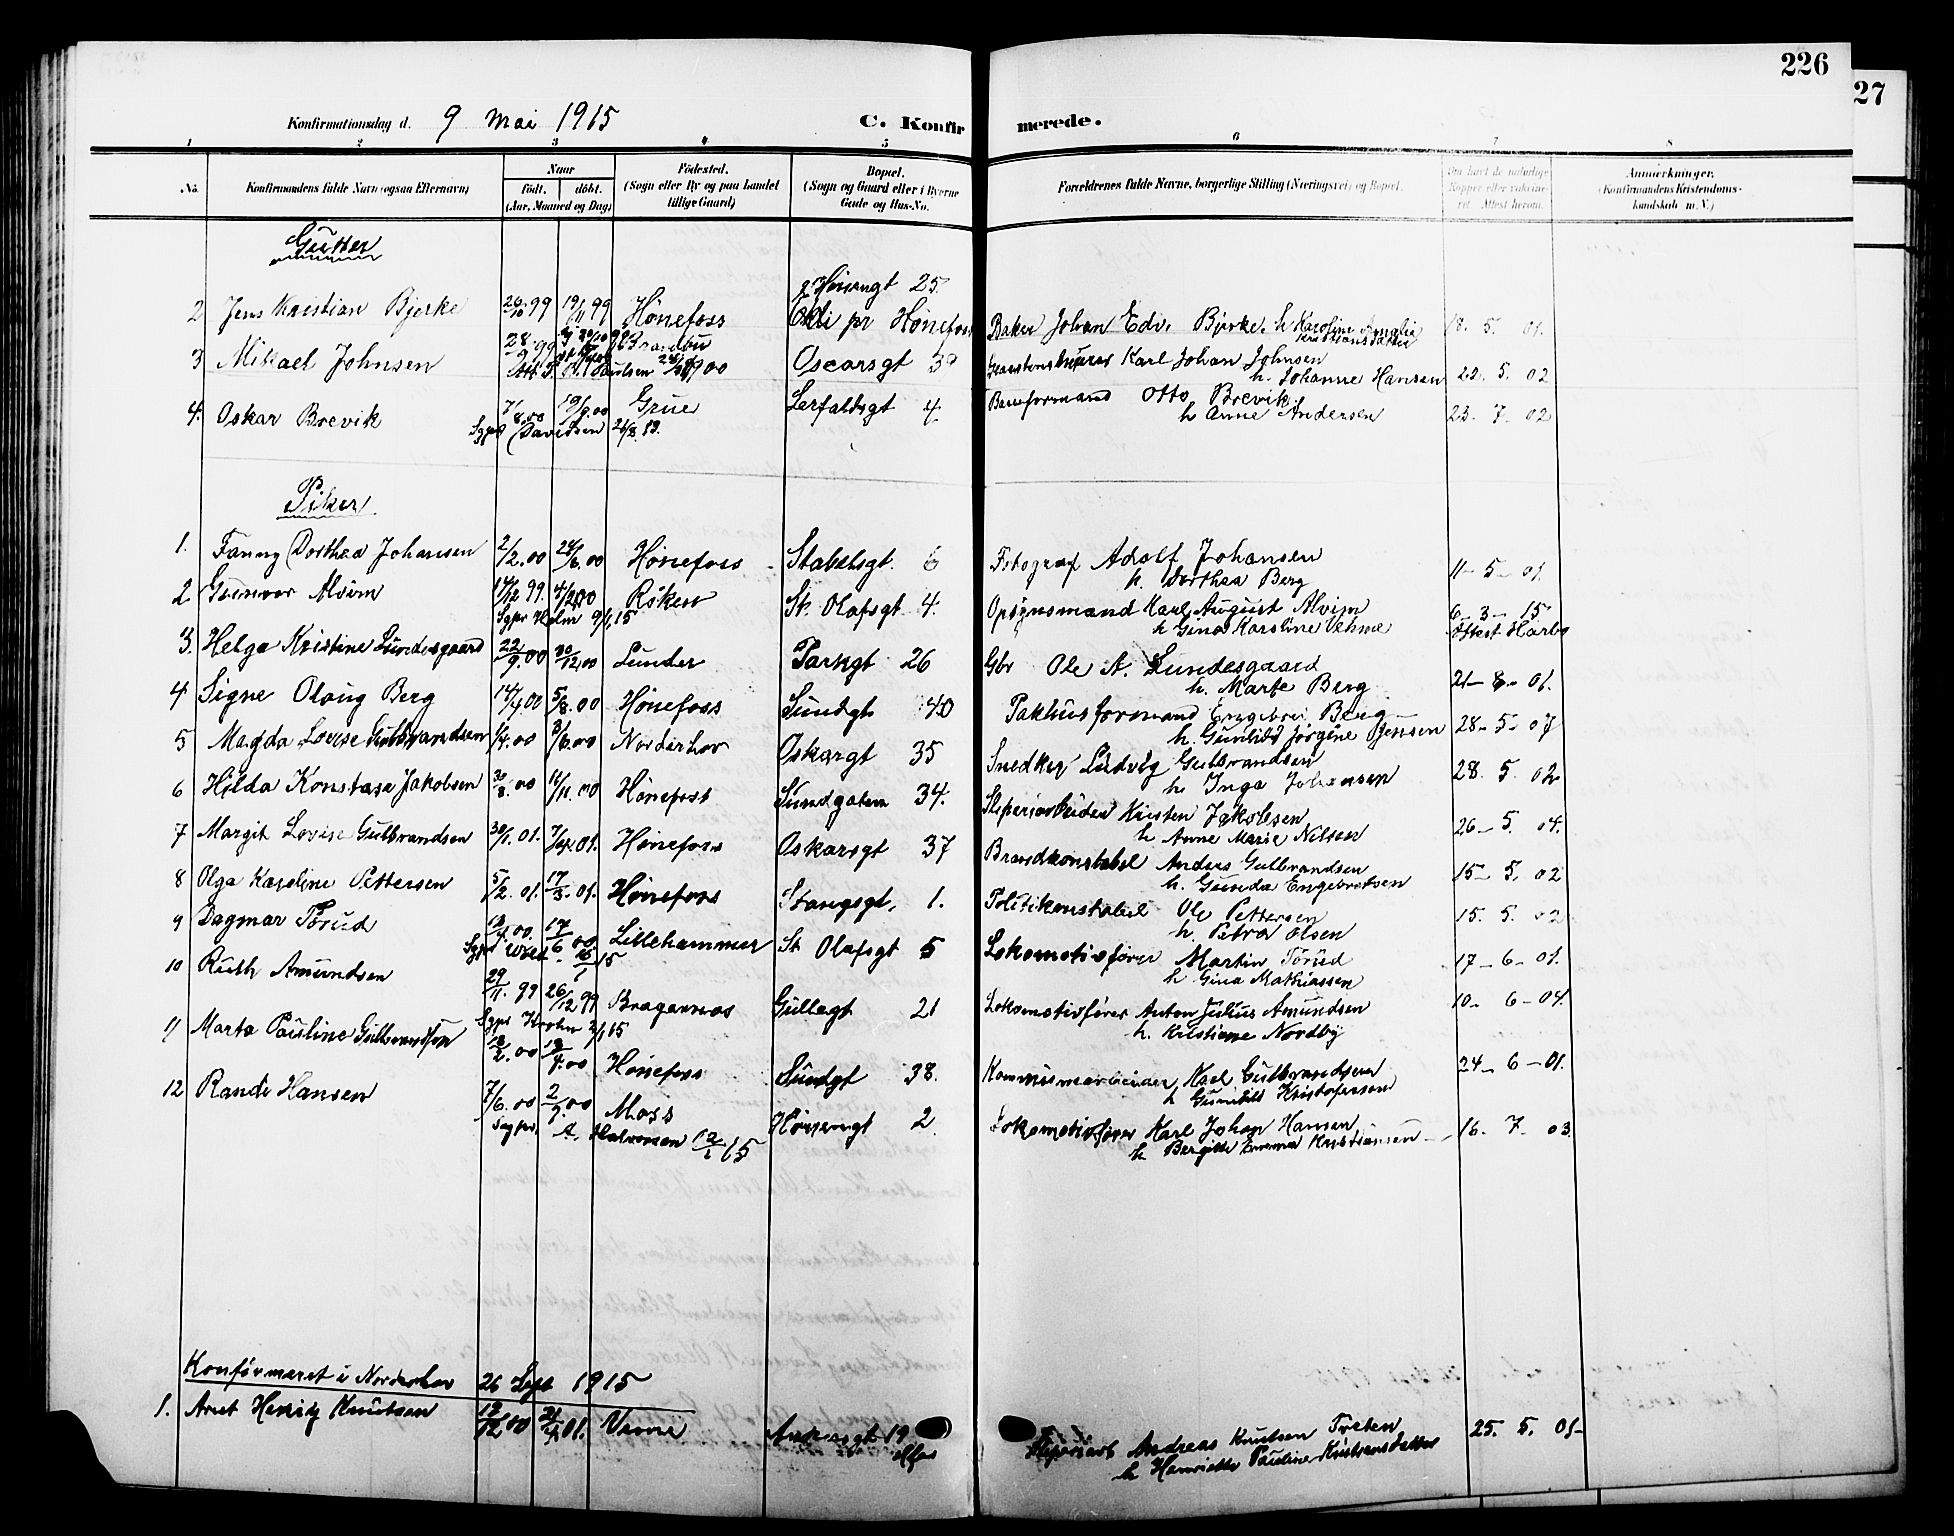 226
27
Konfirmationsdag d. 9 Mai 1915
C. Konfirmerede.
1 2 3 4 5 6 7 8
No. Konfirmandens fulde Navn (ogsaa Efternavn)
Naar födt. döbt. (Aar, Maaned og Dag)
Födested. (Sogn eller By og paa Landet tillige Gaard)
Bopæl. (Sogn og Gaard eller i Byerne Gade og Hus-No.
Forældrenes fulde Navne, borgerlige Stilling (Næringsvei) og Bopæl.
Om havt de naturlige Kopper eller vaccineret. Attest herom.
Anmærkninger. (Konfirmandens Kristendomskundskab m. V.)
Gutter
Hönengt 25
2 Jens Kristian Bjerke 26/10 99 19/11 99 Hönefoss pr Hönefoss Baker Johan Edv. Bjerke. h Karoline Amalie Kristiansdatter 18. 5. 01.
3 Mikael Johnsen 28/9 99 Brandbu Oscarsgt 30 Karl Johan Johnsen h. Johanne Hansen 22. 5. 02
4. Oskar Brevik 7/8.00 19/9.00 Grue Lerfaldsgt 4. Baneformand Otto Brevik h Anne Andersen 23. 7. 02
Sgpr Davidsen
Piker
1. Fanny Dorthea Johansen 2/2.00 24/6.00 Hönefoss Stabelsgt. 6 Fotograf Adolf Johansen h. Dorthea Berg 11-5-01.
2 Gunvor Alvim 14/12 99. Röken St. Olafsgt 4. Opsynsmand Karl August Alvim h Gina Karoline Vehme 6-3-15 Attest Harbo
Sgpr Holm 9/1 15
3. Helga Kristine Lundesgaard 22/9.00 30/12.00 Lunder Parkgt 26 Gbr Ole A. Lundesgaard h. Marte Berg 21-8-01.
4 Signe Olaug Berg 14/4.00 5/8.00 Hönefoss Sundgt 40 Pakhusformand Engebret Berg h. Gunhild Jörgine Jensen 28-5-07
5 Magda Lovise Gulbrandsen 1/4.00 3/6.00 Norderhov Oskargt 35 Snedker Ludvig Gulbrandsen h. Inga Johansen 28. 5. 02
6 Hilda Konstase Jakobsen 30/8.00 11/11.00 Hönefoss Sundgaten 34. Sliperiarbeider Kristen Jakobsen h Anne Marie Nilsen 26-5. 04.
7 Margit Lovise Gulbrandsen 30/1.01. 7/4.01. Hönefoss Oskarsgt 37 Brandkonstabel Anders Gulbrandsen h. Gunda Engebretsen 15-5. 02
8 Olga Karoline Pettersen 5/2.01. 17/3.01. Hönefoss Stangsgt, 1. Politikonstabel Ole Pettersen h. Petra Olsen 15. 5. 02
9 Dagmar Törud 17/6 00 Lillehammer St Olafsgt 5 Lokomotivförer Martin Törud h Gina Mathiassen 17-6-01.
10 Ruth Amundsen 29/11. 99 26/12 99 Bragernes Gullagt 21 Lokomotivförer Anton Julius Amundsen h. Kristiane Nordby 10-6-04.
11 Marta Pauline Gulbrandsen 18/2.00 Hönefoss Sundgt 38. Kommunearbeider Karl Gulbrandsen h Gunhild Kristofersen 24-6-01.
12 Randi Hansen 7/6.00 2/9.00 Moss Hönengt 2 Lokomotivförer Karl Johan Hansen h Bergitte Emma Kristiansen 16. 7. 03.
Sogpr. A. Halvorsen 12/1 15
Konfirmeret i Norderhov 26 Sept 1915
1. Arnt Henry Knutsen 12/12 00 Andreas Knutsen Treten h Henriette Pauline Kristensdatter 25. 5. 01